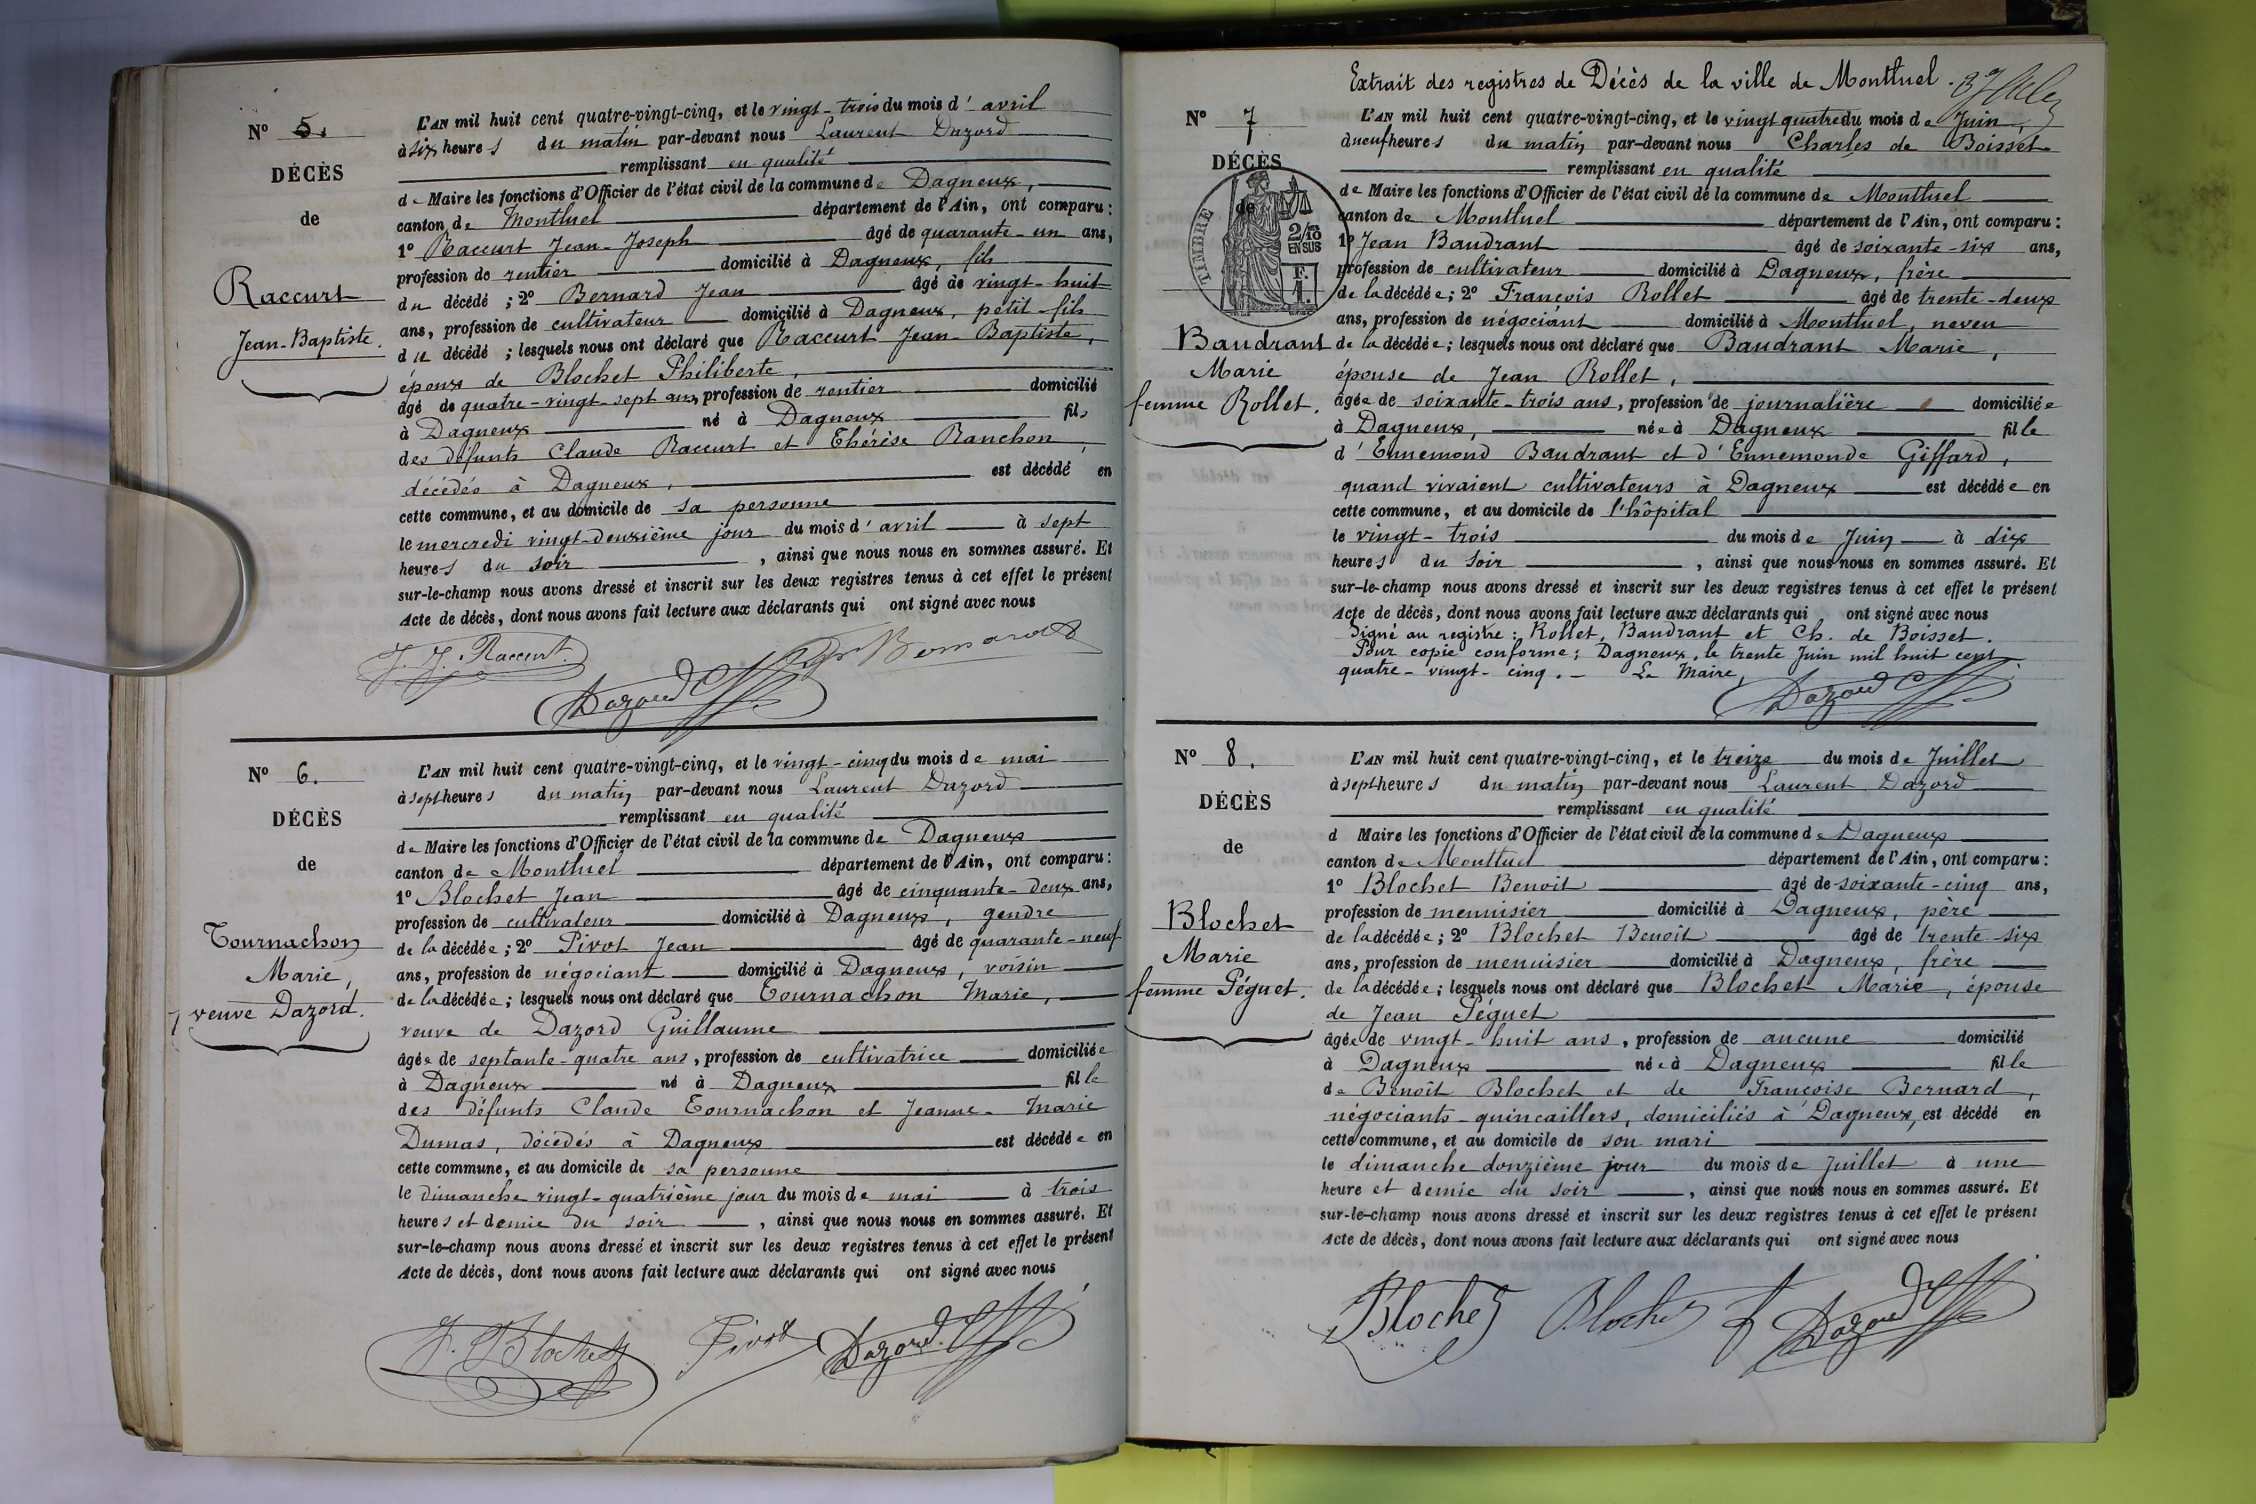 N° 5.
DÉCÈS
de
Raccurt
Jean-Baptiste.
L'AN mil huit cent quatre-vingt-cinq, et le vingt-trois du mois d'avril
à six heures du matin par-devant nous Laurent Dazord
remplissant en qualité
de Maire les fonctions d'Officier de l'état civil de la commune de Dagneux,
canton de Montluel département de l'Ain, ont comparu:
1° Raccurt Jean-Joseph âgé de quarante-un ans,
profession de rentier domicilié à Dagneux, fils
du décédé ; 2° Bernard Jean âgé de vingt-huit
ans, profession de cultivateur domicilié à Dagneux, petit-fils
du décédé ; lesquels nous ont déclaré que Raccurt Jean-Baptiste,
époux de Blochet Philiberte,
âgé de quatre-vingt-sept ans, profession de rentier domicilié
à Dagneux né à Dagneux fils
des défunts Claude Raccurt et Thérèse Ranchon,
décédés à Dagneux, est décédé en
cette commune, et au domicile de sa personne
le mercredi vingt-deuxième jour du mois d'avril à sept
heures du soir , ainsi que nous nous en sommes assuré. Et
sur-le-champ nous avons dressé et inscrit sur les deux registres tenus à cet effet le présent
Acte de décès, dont nous avons fait lecture aux déclarants qui ont signé avec nous
J. J. Raccurt.
Dazord
N° 6.
DÉCÈS
de
Tournachon
Marie,
veuve Dazord.
L'AN mil huit cent quatre-vingt-cinq, et le vingt-cinq du mois de mai
à sept heures du matin par-devant nous Laurent Dazord
remplissant en qualité
de Maire les fonctions d'Officier de l'état civil de la commune de Dagneux
canton de Montluel département de l'Ain, ont comparu:
1° Blochet Jean âgé de cinquante-deux ans,
profession de cultivateur domicilié à Dagneux, gendre
de la décédée ; 2° Pivot Jean âgé de quarante-neuf
ans, profession de négociant domicilié à Dagneux, voisin
de la décédée ; lesquels nous ont déclaré que Tournachon Marie,
veuve de Dazord Guillaume
âgée de septante-quatre ans, profession de cultivatrice domiciliée
à Dagneux né à Dagneux fille
des défunts Claude Tournachon et Jeanne-Marie
Dumas, décédés à Dagneux est décédée en
cette commune, et au domicile de sa personne
le dimanche vingt-quatrième jour du mois de mai à trois
heures et demie du soir , ainsi que nous nous en sommes assuré. Et
sur-le-champ nous avons dressé et inscrit sur les deux registres tenus à cet effet le présent
Acte de décès, dont nous avons fait lecture aux déclarants qui ont signé avec nous
J. Blochet Pivot Dazord
Extrait des registres de Décès de la ville de Montluel.
N° 7
DÉCÈS
de
TIMBRE
2/10
EN SUS
F.
1.
Baudrant
Marie
femme Rollet.
L'AN mil huit cent quatre-vingt-cinq, et le vingt quatre du mois de Juin,
à neuf heures du matin par-devant nous Charles de Boisset
remplissant en qualité
de Maire les fonctions d'Officier de l'état civil de la commune de Montluel
canton de Montluel département de l'Ain, ont comparu:
1° Jean Baudrant âgé de soixante-six ans,
profession de cultivateur domicilié à Dagneux, frère
de la décédée ; 2° François Rollet âgé de trente-deux
ans, profession de négociant domicilié à Montluel, neveu
de la décédée ; lesquels nous ont déclaré que Baudrant Marie,
épouse de Jean Rollet,
âgée de soixante-trois ans, profession de journalière domiciliée
à Dagneux, née à Dagneux fille
d'Ennemond Baudrant et d'Ennemonde Giffard,
quand vivaient cultivateurs à Dagneux est décédée en
cette commune, et au domicile de l'hôpital
le vingt-trois du mois de Juin à dix
heures du soir , ainsi que nous nous en sommes assuré. Et
sur-le-champ nous avons dressé et inscrit sur les deux registres tenus à cet effet le présent
Acte de décès, dont nous avons fait lecture aux déclarants qui ont signé avec nous
Signé au registre : Rollet, Baudrant et Ch. de Boisset.
Pour copie conforme : Dagneux, le trente Juin mil huit cent
quatre-vingt-cinq.- Le Maire,
Dazord
N° 8.
DÉCÈS
de
Blochet
Marie
femme Péguet.
L'AN mil huit cent quatre-vingt-cinq, et le treize du mois de Juillet
à sept heures du matin par-devant nous Laurent Dazord
remplissant en qualité
d Maire les fonctions d'Officier de l'état civil de la commune de Dagneux
canton de Montluel département de l'Ain, ont comparu:
1° Blochet Benoît âgé de soixante-cinq ans,
profession de menuisier domicilié à Dagneux, père
de la décédée ; 2° Blochet Benoît âgé de trente-six
ans, profession de menuisier domicilié à Dagneux, frère
de la décédée ; lesquels nous ont déclaré que Blochet Marie, épouse
de Jean Péguet
âgée de vingt-huit ans, profession de aucune domicilié
à Dagneux née à Dagneux fille
de Benoît Blochet et de Françoise Bernard,
négociants-quincaillers, domiciliés à Dagneux, est décédé en
cette commune, et au domicile de son mari
le dimanche douzième jour du mois de Juillet à une
heure et demie du soir , ainsi que nous nous en sommes assuré. Et
sur-le-champ nous avons dressé et inscrit sur les deux registres tenus à cet effet le présent
Acte de décès, dont nous avons fait lecture aux déclarants qui ont signé avec nous
Blochet Blochet Dazord